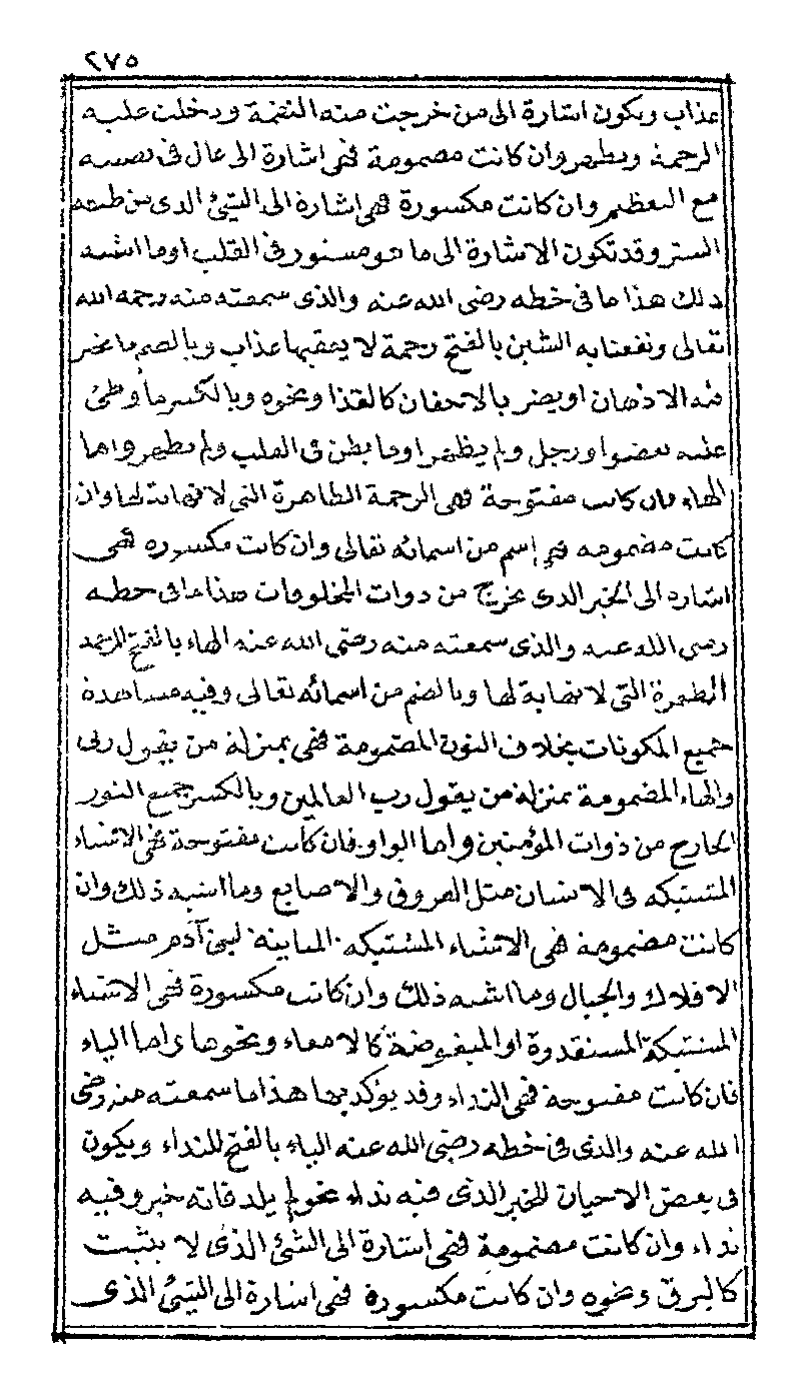 ٢٧٥
عذاب ويكون اشارة الى من خرجت منه النقمة ودخلت عليه
الرحمة ويطهر وان كانت مضمومة فهى اشارة الى عال فى نفسه
مع التعظيم وان كانت مكسورة فهى اشارة الى الشئ الذى من طبعه
الستر وقد تكون الاشارة الى ما هو مستور فى القلب او ما اشبه
ذلك هذا ما فى خطه رضى الله عنه والذى سمعته منه رحمه الله
تعالى ونفعنا به الشين بالفتح رحمة لا يعقبها عذاب وبالضم ما تحير
فيه الاذهان او يضر بالاجفان كالقذا ونحوه وبالكسر ما وطئ
عليه بعضو او رجل ولم يظهر او ما بطن فى القلب ولم يظهر واما
الهاء فان كانت مفتوحة فهى الرحمة الطاهرة التى لا نهاية لها وان
كانت مضمومه فهى اسم من اسمائه تعالى وان كانت مكسوره فهى
اشاره الى الخير الذى يخرج من ذوات المخلوقات هذا ما فى خطه
رضى الله عنه والذى سمعته منه رضى الله عنه الهاء بالفتح الرحمة
الطهرة التى لا نهاية لها وبالضم من اسمائه تعالى وفيه مشاهدة
جميع المكونات بخلاف النون المضمومة فهى بمنزلة من يقول ربى
والهاء المضمومة بمنزلة من يقول رب العالمين وبالكسر جميع النور
الخارج من ذوات المؤمنين واما الواو فان كانت مفتوحة فهى الاشياء
المشتبكه فى الانسان مثل العروق والاصابع وما اشبه ذلك وان
كانت مضمومة فهى الاشياء المشتبكه المباينه لبنى آدم مثل
الافلاك والجبال وما اشبه ذلك وان كانت مكسورة فهى الاشياء
المشتبكة المستقذرة او المبغوضة كالامعاء ونحوها واما الياء
فان كانت مفتوحة فهى النداء وقد يؤكد بها هذا ما سمعته منه رضى
الله عنه والذى فى خطه رضى الله عنه الياء بالفتح للنداء ويكون
فى بعض الاحيان للخبر الذى فيه نداء نحو لم يلد فانه خبر وفيه
نداء وان كانت مضمومة فهى اشارة الى الشئ الذى لا يثبت
كالبرق ونحوه وان كانت مكسورة فهى اشارة الى الشئ الذى